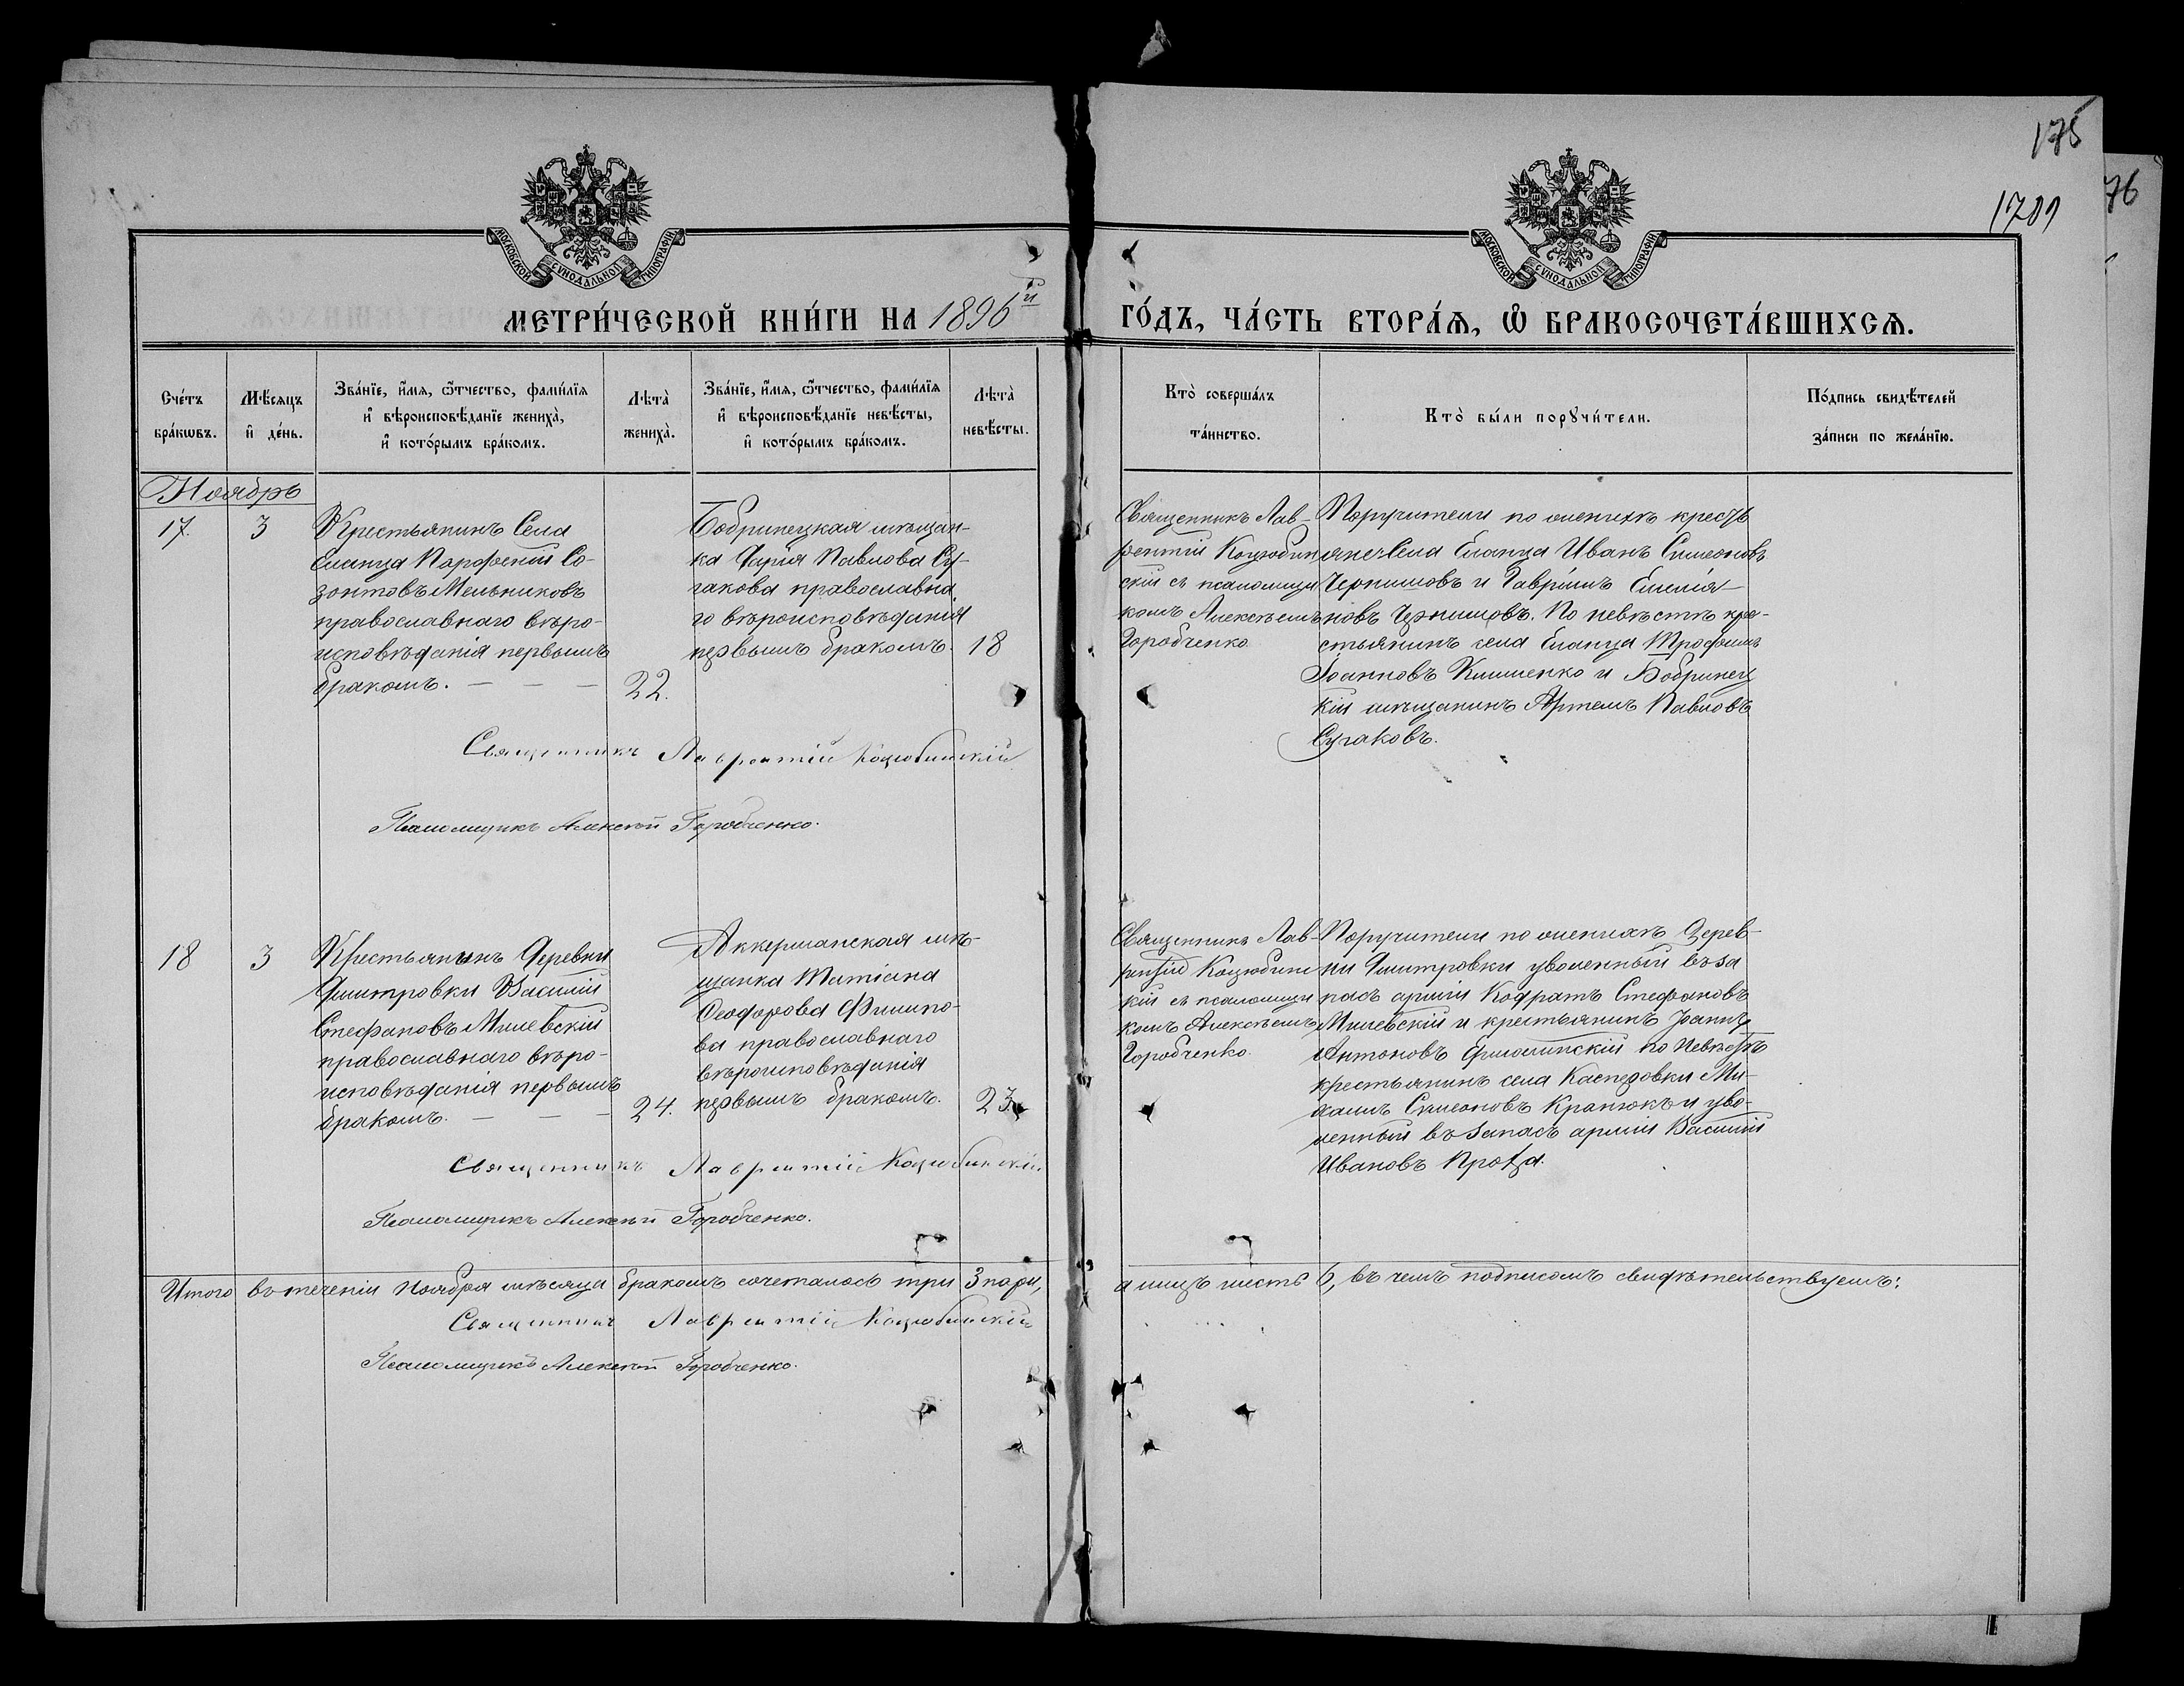 175
1701
76
МОСКОВСКОЙ СѴНОДАЛЬНОЙ ТИПОГРАФІИ
МОСКОВСКОЙ СѴНОДАЛЬНОЙ ТИПОГРАФІИ
МЕТРИ́ЧЕСКОЙ КНИ́ГИ НА 1896й ГО́ДЪ, ЧА́СТЬ ВТОРА́Ѧ, Ѽ БРАКОСОЧЕТА́ВШИХСѦ.
Сче́тъ бра́кѡвъ.
Мѣ́сяцъ и҆ де́нь.
Зва́нїе, и҆́мя, ѻ҆́тчество, фами́лїя
и҆ вѣроисповѣ́данїе жениха̀,
и҆ кото́рымъ бра́комъ.
Лѣта̀ жениха̀.
Зва́нїе, и҆́мя, ѻ҆́тчество, фами́лїя
и҆ вѣроисповѣ́данїе невѣ́сты,
и҆ кото́рымъ бра́комъ.
Лѣта̀ невѣ́сты.
Кто̀ соверша́лъ та́инство.
Кто̀ бы́ли порꙋчи́тели.
По́дпись свидѣ́телей за́писи по жела́нїю.
Ноябрь
17. 3
Крестьянинъ Села
Еланца Парфеній Со-
зонтовъ Мельниковъ
православнаго вѣро-
исповѣданія первымъ
бракомъ. — — — 22.
Бобринецкая мѣщан-
ка Дарія Павлова Су-
гакова православна
го вѣроисповѣданія
первымъ бракомъ. 18
Священникъ Лав-
рентій Коцюбин
скій съ псаломщи
комъ Алексѣемъ
Городченко.
Поручители по женихѣ кресть
яне Села Еланца Иванъ Симеоновъ
Чернышовъ и Гавріилъ Емелія-
новъ Чернышовъ. По невѣстѣ кре-
стьянинъ села Еланца Трофимъ
Іоанновъ Клименко и Бобринец
кій мѣщанинъ Артемъ Павловъ
Сугаковъ.
Священникъ Лаврентій Коцюбинскій
Псаломщикъ Алексѣй Городченко.
18 3
Крестьянинъ Деревни
Дмитровки Василій
Стефановъ Милевскій
православнаго вѣро-
исповѣданія первымъ
бракомъ. — — — 24.
Аккерманская мѣ-
щанка Татіана
Феодорова Филипо-
ва православнаго
вѣроисповѣданія
первымъ бракомъ. 23
Священникъ Лав-
рентій Коцюбин
скій съ псаломщи
комъ Алексѣемъ
Городченко.
Поручители по женихѣ Дерев-
ни Дмитровки уволенный въ за
пасъ арміи Кодратъ Стефановъ
Милевскій и крестьянинъ Іоаннъ
Антоновъ Ермолинскій по невѣстѣ
крестьянинъ села Касперовки Ми-
хаилъ Симеоновъ Кранюкъ и уво-
ленный въ запасъ арміи Василій
Ивановъ
Священникъ Лаврентій Коцюбинскій
Псаломщикъ Алексѣй Городченко.
Итого въ теченіи Ноября мѣсяца бракомъ сочеталось три 3 пары, а лицъ шесть 6, въ чемъ подписомъ свидѣтельствуемъ:
Священникъ Лаврентій Коцюбинскій
Псаломщикъ Алексѣй Городченко.